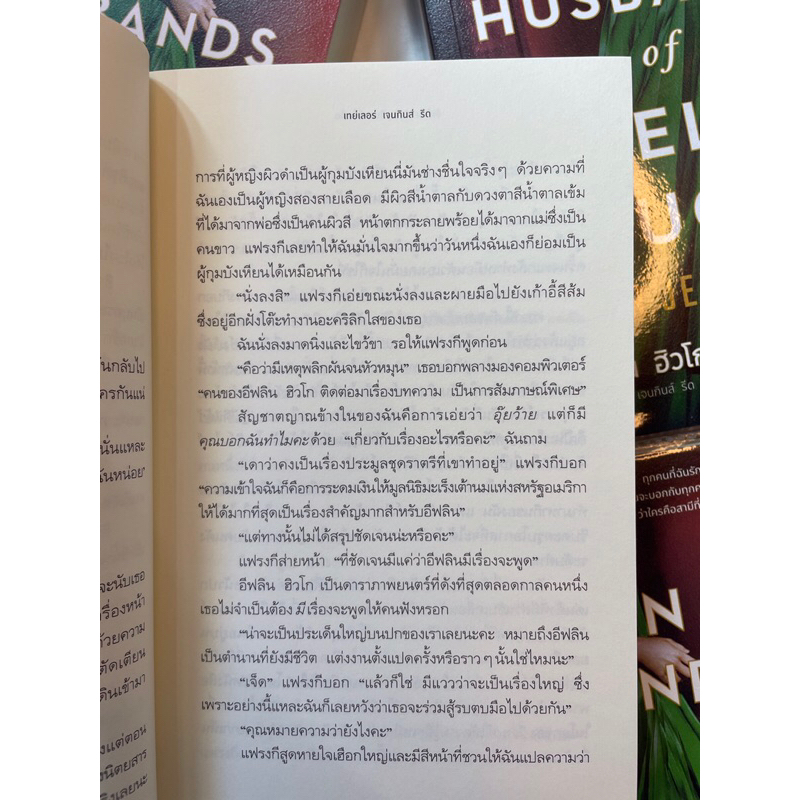 RANDS
HUSBA
of
EL
เทย์เลอร์ เจนกินส์ รีด
การที่ผู้หญิงผิวดำเป็นผู้กุมบังเหียนนี่มันช่างชื่นใจจริงๆ ด้วยความที่
ฉันเองเป็นผู้หญิงสองสายเลือด มีผิวสีน้ำตาลกับดวงตาสีน้ำตาลเข้ม
ที่ได้มาจากพ่อซึ่งเป็นคนผิวสี หน้าตกกระลายพร้อยได้มาจากแม่ซึ่งเป็น
คนขาว แฟรงกีเลยทำให้ฉันมั่นใจมากขึ้นว่าวันหนึ่งฉันเองก็ย่อมเป็น
ผู้กุมบังเหียนได้เหมือนกัน
“นั่งลงสิ” แฟรงกีเอ่ยขณะนั่งลงและผายมือไปยังเก้าอี้สีส้ม
ซึ่งอยู่อีกฝั่งโต๊ะทำงานอะคริลิกใสของเธอ
ฉันนั่งลงมาดนิ่งและไขว้ขา รอให้แฟรงกีพูดก่อน
“คือว่ามีเหตุพลิกผันจนหัวหมุน” เธอบอกพลางมองคอมพิวเตอร์
“คนของอีฟลิน ฮิวโก ติดต่อมาเรื่องบทความ เป็นการสัมภาษณ์พิเศษ”
สัญชาตญาณข้างในของฉันคือการเอ่ยว่า อุ๊ยว้าย แต่ก็มี
คุณบอกฉันทำไมคะด้วย “เกี่ยวกับเรื่องอะไรหรือคะ” ฉันถาม
“เดาว่าคงเป็นเรื่องประมูลชุดราตรีที่เขาทำอยู่” แฟรงกีบอก
“ความเข้าใจฉันก็คือการระดมเงินให้มูลนิธิมะเร็งเต้านมแห่งสหรัฐอเมริกา
ให้ได้มากที่สุดเป็นเรื่องสำคัญมากสำหรับอีฟลิน”
“แต่ทางนั้นไม่ได้สรุปชัดเจนน่ะหรือคะ”
แฟรงกีส่ายหน้า “ที่ชัดเจนมีแค่ว่าอีฟลินมีเรื่องจะพูด”
อีฟลิน ฮิวโก เป็นดาราภาพยนตร์ที่ดังที่สุดตลอดกาลคนหนึ่ง
เธอไม่จำเป็นต้อง มี เรื่องจะพูดให้คนฟังหรอก
“น่าจะเป็นประเด็นใหญ่บนปกของเราเลยนะคะ หมายถึงอีฟลิน
เป็นตำนานที่ยังมีชีวิต แต่งงานตั้งแปดครั้งหรือราวๆ นั้นใช่ไหมนะ”
“เจ็ด” แฟรงกีบอก “แล้วก็ใช่ มีแววว่าจะเป็นเรื่องใหญ่ ซึ่ง
เพราะอย่างนี้แหละฉันก็เลยหวังว่าเธอจะร่วมสู้รบตบมือไปด้วยกัน”
“คุณหมายความว่ายังไงคะ”
แฟรงกีสูดหายใจเฮือกใหญ่และมีสีหน้าที่ชวนให้ฉันแปลความว่า
นกลับไป
ครกันแน่
นั่นแหละ
ันหน่อย”
จะนับเธอ
รื่องหน้า
ด้วยความ
ตัดเตียน
ดินเข้ามา
งแต่ตอน
งนิตยสาร
ริงเลยนะ
ฮิวโก
เจนกินส์ รีด
ทุกคนที่ฉันรัก
จะบอกกับทุกค
ว่าใครคือสามีที่
N